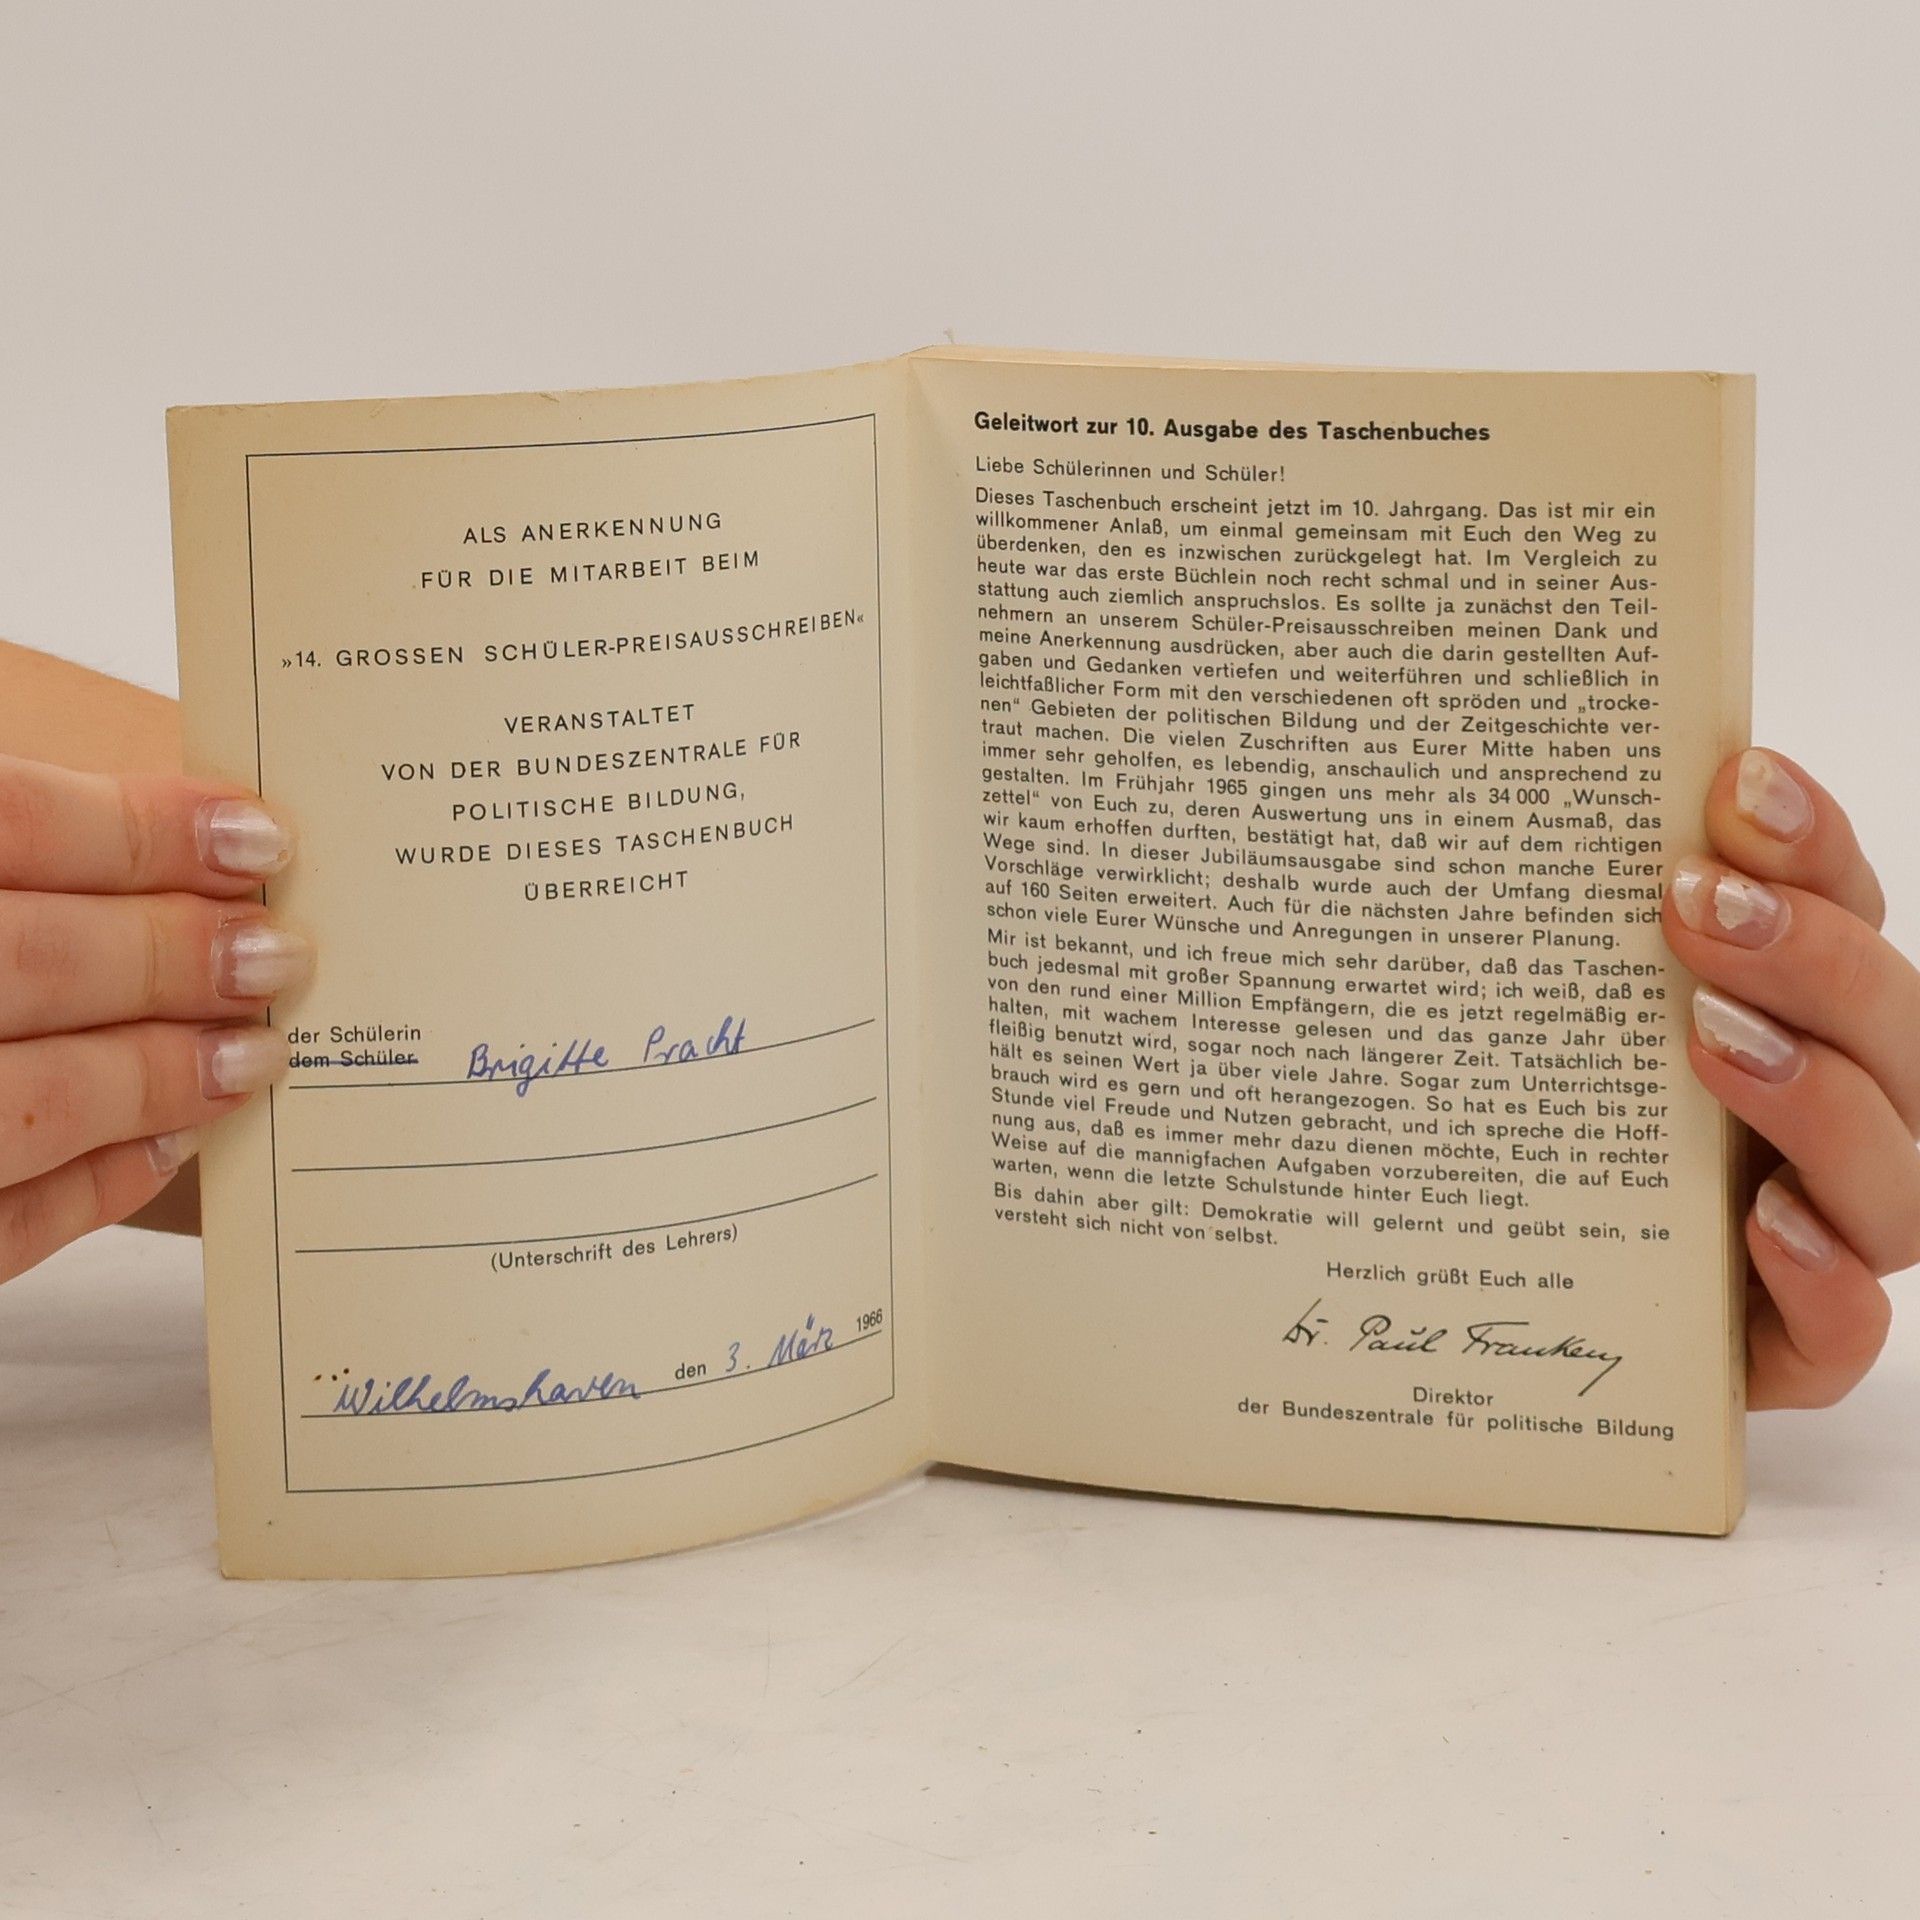 ALS ANERKENNUNG
FÜR DIE MITARBEIT BEIM
»14. GROSSEN SCHÜLER-PREISAUSSCHREIBEN«
VERANSTALTET
VON DER BUNDESZENTRALE FÜR
POLITISCHE BILDUNG,
WURDE DIESES TASCHENBUCH
ÜBERREICHT
der Schülerin
dem Schüler Brigitte Pracht
(Unterschrift des Lehrers)
Wilhelmshaven den 3. März 1966
Geleitwort zur 10. Ausgabe des Taschenbuches
Liebe Schülerinnen und Schüler!
Dieses Taschenbuch erscheint jetzt im 10. Jahrgang. Das ist mir ein
willkommener Anlaß, um einmal gemeinsam mit Euch den Weg zu
überdenken, den es inzwischen zurückgelegt hat. Im Vergleich zu
heute war das erste Büchlein noch recht schmal und in seiner Aus-
stattung auch ziemlich anspruchslos. Es sollte ja zunächst den Teil-
nehmern an unserem Schüler-Preisausschreiben meinen Dank und
meine Anerkennung ausdrücken, aber auch die darin gestellten Auf-
gaben und Gedanken vertiefen und weiterführen und schließlich in
leichtfaßlicher Form mit den verschiedenen oft spröden und „trocke-
nen“ Gebieten der politischen Bildung und der Zeitgeschichte ver-
traut machen. Die vielen Zuschriften aus Eurer Mitte haben uns
immer sehr geholfen, es lebendig, anschaulich und ansprechend zu
gestalten. Im Frühjahr 1965 gingen uns mehr als 34 000 „Wunsch-
zettel“ von Euch zu, deren Auswertung uns in einem Ausmaß, das
wir kaum erhoffen durften, bestätigt hat, daß wir auf dem richtigen
Wege sind. In dieser Jubiläumsausgabe sind schon manche Eurer
Vorschläge verwirklicht; deshalb wurde auch der Umfang diesmal
auf 160 Seiten erweitert. Auch für die nächsten Jahre befinden sich
schon viele Eurer Wünsche und Anregungen in unserer Planung.
Mir ist bekannt, und ich freue mich sehr darüber, daß das Taschen-
buch jedesmal mit großer Spannung erwartet wird; ich weiß, daß es
von den rund einer Million Empfängern, die es jetzt regelmäßig er-
halten, mit wachem Interesse gelesen und das ganze Jahr über
fleißig benutzt wird, sogar noch nach längerer Zeit. Tatsächlich be-
hält es seinen Wert ja über viele Jahre. Sogar zum Unterrichtsge-
brauch wird es gern und oft herangezogen. So hat es Euch bis zur
Stunde viel Freude und Nutzen gebracht, und ich spreche die Hoff-
nung aus, daß es immer mehr dazu dienen möchte, Euch in rechter
Weise auf die mannigfachen Aufgaben vorzubereiten, die auf Euch
warten, wenn die letzte Schulstunde hinter Euch liegt.
Bis dahin aber gilt: Demokratie will gelernt und geübt sein, sie
versteht sich nicht von selbst.
Herzlich grüßt Euch alle
Dr. Paul Franken
Direktor
der Bundeszentrale für politische Bildung